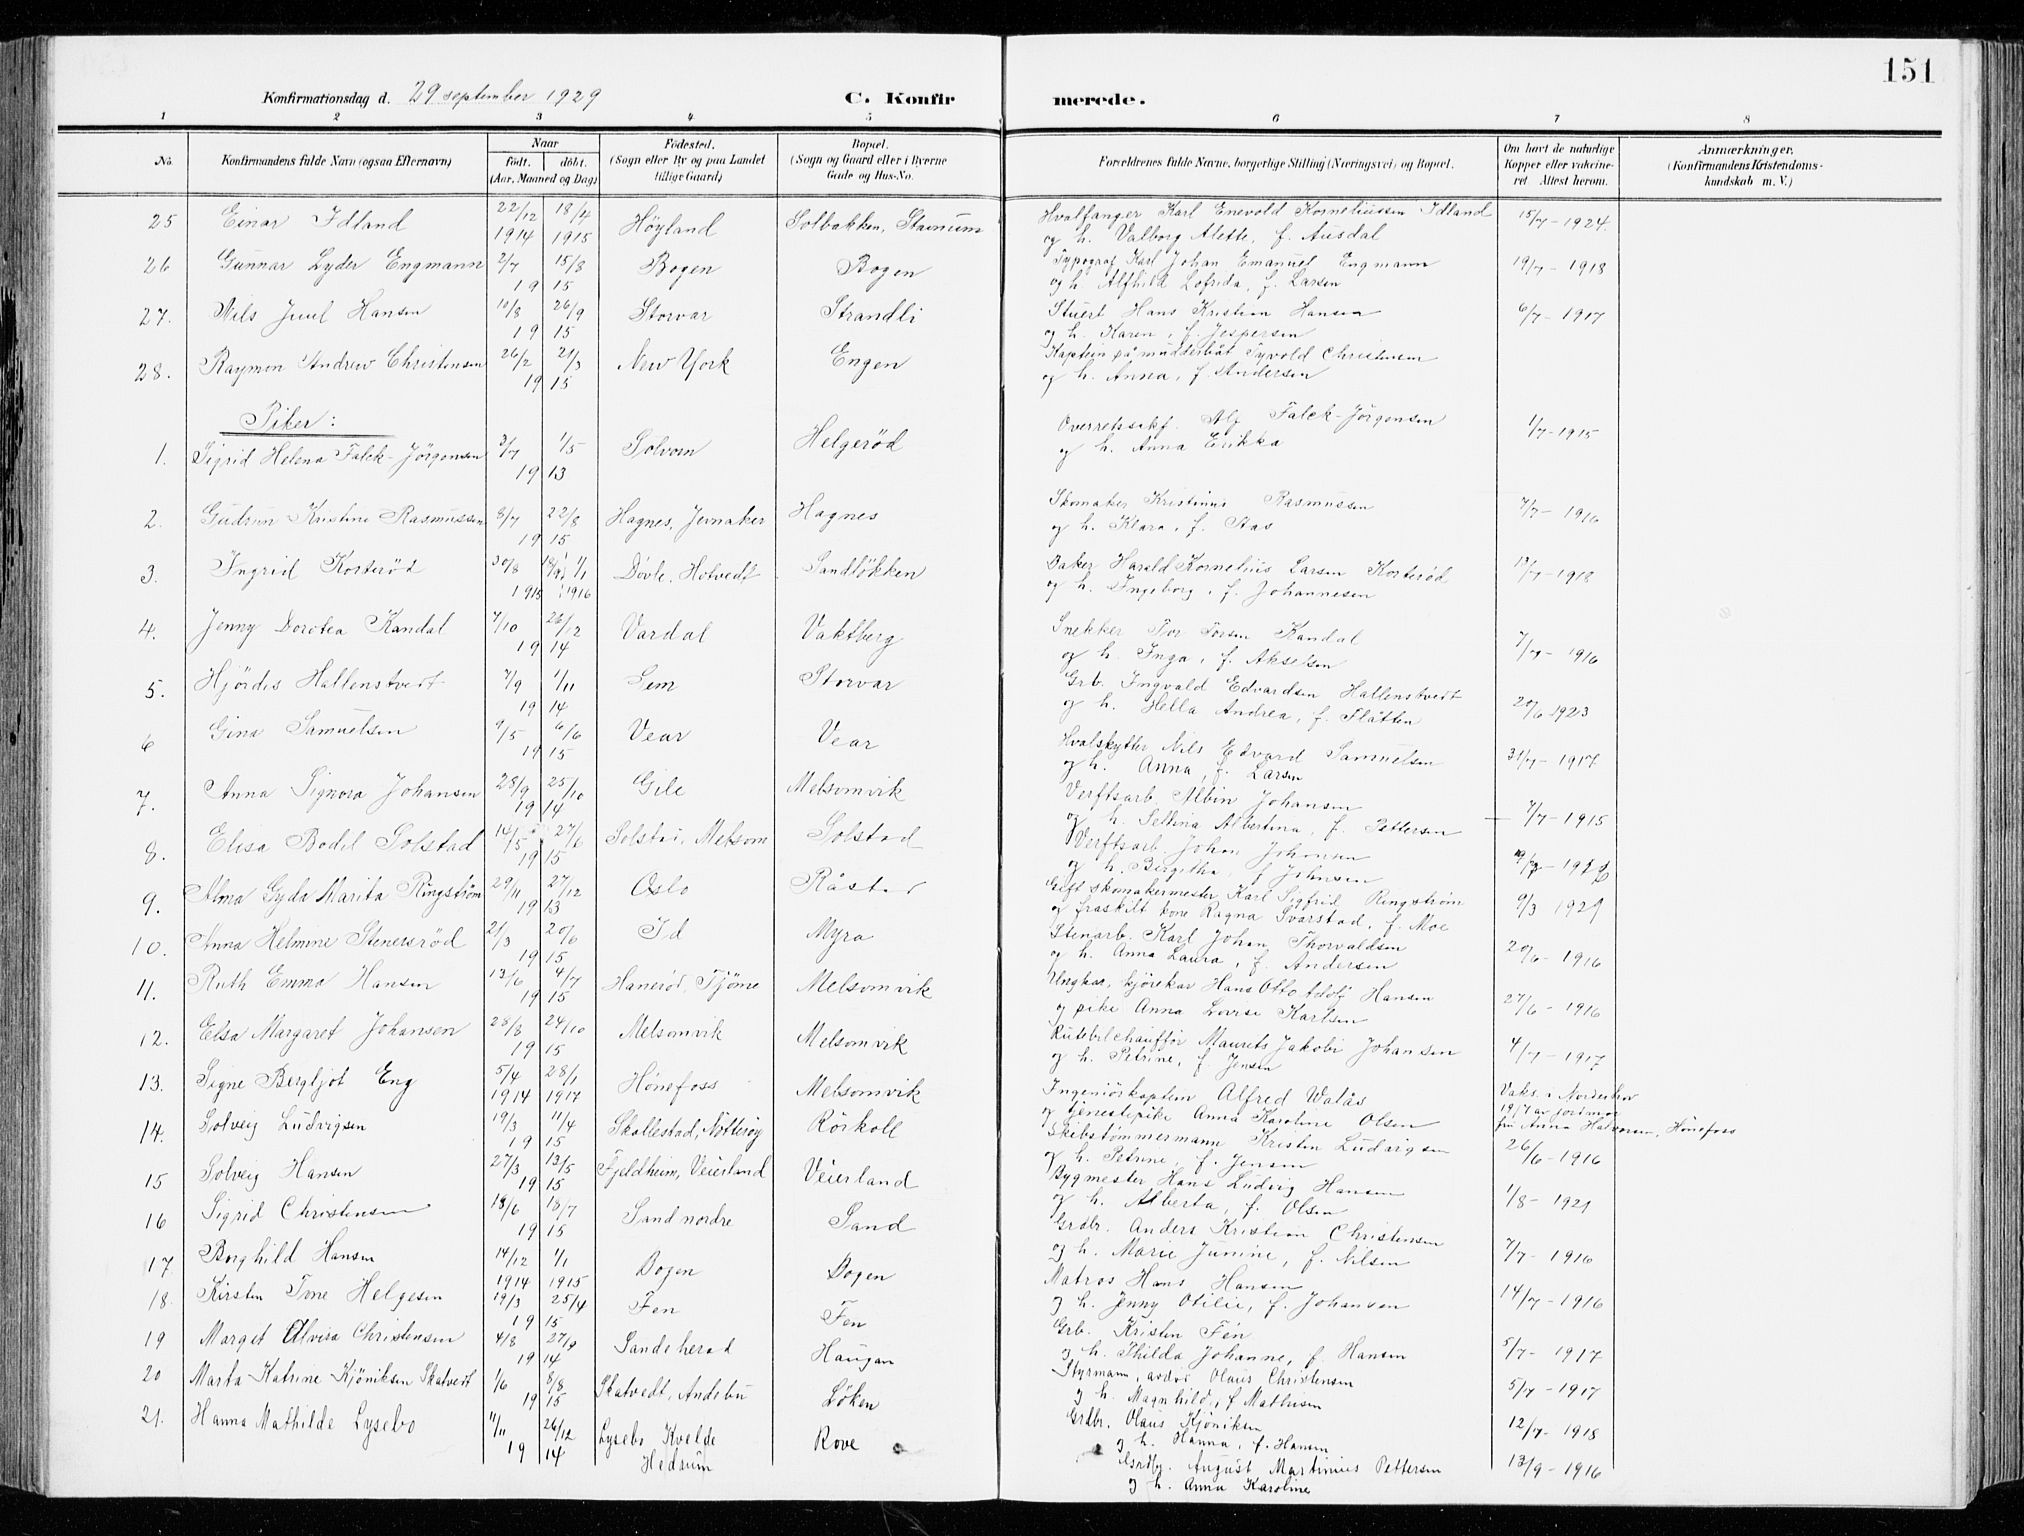 151
Konfirmationsdag d. 29 september 1929
C. Konfirmerede.
1 2 3 4 5 6 7 8
No. Konfirmandens fulde Navn (ogsaa Efternavn) Naar født. døbt. (Aar, Maaned og Dag) Fødested. (Sogn eller By og paa Landet tillige Gaard) Bopæl. (Sogn og Gaard eller i Byerne Gade og Hus-No. Forældrenes fulde Navne, borgerlige Stilling (Næringsvei) og Bopæl. Om havt de naturlige Kopper eller vakcineret. Attest herom. Anmærkninger. (Konfirmandens Kristendomskundskab m. V.)
25 Einar Idland 22/12 1914 18/4 1915 Höyland Solbakken, Hvalfanger Karl Enevold Korneliussen Idland 15/7 - 1924
og h. Valborg Alette, f. Ausdal
26 Gunnar Lyder Engmann 2/7 15/8 1915 Bogen Bogen Typograf Karl Johan Emanuel Engmann 19/7 - 1918
og h. Alfhild Lofrida, f. Larsen
27. Nils Juul Hansen 10/8 26/9 1915 Storvar Strandli Stuert Hans Kristian Hansen 6/7 - 1917
og h. Karen, f. Jespersen
28. Raymon Andrew Christensen 26/2 21/3 1915 New York Engen Kaptein på mudderbåt Tyvold Christensen
og h. Anna, f. Andersen
Piker:
1. Sigrid Helena Falck-Jörgensen 3/7 1/5 1913 Solvorn Helgeröd Overretssakf. Alf Falck-Jörgensen 1/7 - 1915
og h. Anna Erikka
2. Gudrun Kristine Rasmussen 8/7 22/8 1915 Hagnes, Jernaker Hagnes Skomaker Kristinus Rasmussen 7/7 - 1916
og h. Klara, f. Aas
3. Ingrid Korteröd 30/8 1915 1/1 1916 Dövle, Hotvedt Sandlökken Baker Harald Kornelius Larsen Korteröd 1918
og h. Ingeborg, f. Johannesen
4. Jenny Dorotea Kandal 7/10 26/12 1914 Vardal Vaktberg Snekker Tor Torsen Kandal 7/7 - 1916
og h. Inga, f. Akselsen
5. Hjördis Hallenstvedt 7/9 1/11 1914 Sem Storvar Grb. Ingvald Edvardsen Hallenstvedt 20/6 1923
og h. Hella Andrea, f. Flåtten
6 Gina Samuelsen 9/5 6/6 1915 Vear Vear Hvalskytter Nils Edvard Samuelsen 31/7 - 1917
og h. Anna, f. Larsen
7. Anna Signora Johansen 28/9 25/10 1914 Gile Melsomvik Verftsarb. Albin Johansen 7/7 - 1915
og h. Selhina Albertina, f. Pettersen
8. Elisa Bodil Solstad 14/5 27/6 1915 Solstad, Melsom Solstad Verftsarb. Johan Johansen
og h. Birgitha, f. Johnsen
9. Alma Gyda Marita Ringström 29/11 27/12 1913 Oslo Råstad Gift skomakermester Karl Sigfrid Ringström 9/3 1929
og fraskilt kone Ragna Svarstad, f. Moe
10. Anna Helmine Stenersröd 21/3 20/6 1915 Id Myra Stenarb. Karl Johan Thorvaldsen 20/6 - 1916
og h. Anna Laura, f. Andersen
11. Ruth Emma Hansen 13/6 4/7 1915 Haneröd, Tjöme Melsomvik Ungkar, kjörekar Hans Otto Adolf Hansen 27/6 - 1916
og pike Anna Lovise Karlsen
12. Elsa Margaret Johansen 28/8 24/10 1915 Melsomvik Melsomvik Rutebilchaufför Maurets Jakobi Johansen 4/7 - 1917
og h. Petrine, f. Jensen
13. Signe Bergljot Eng 5/4 1914 28/1 1917 Hönefoss Melsomvik Ingeniörkaptein Alfred Walås Vaks. i Norderhov
og tjenestepike Anna Karoline Olsen 19/7 av jordmor
14. Solveig Ludvigsen 19/3 11/4 1915 Skallestad, Nötteröy Rörkoll Skibstömmermann Kristen Ludvigsen fru Anna Halvorsen, Hönefoss
og h. Petrine, f. Jensen 26/6 - 1916
15 Solveig Hansen 27/3 13/5 1915 Fjeldheim, Veierland Veierland Bygmester Hans Ludvig Hansen 1/8 - 1921
og h. Alberta, f. Olsen
16 Sigrid Christensen 18/6 18/7 1915 Sand nordre Sand Grdbr. Anders Kristian Christensen 7/7 - 1916
og h. Marie Junine, f. Nilsen
17. Borghild Hansen 14/12 1914 1/1 1915 Bogen Bogen Matros Hans Hansen 14/7 - 1916
g h. Jenny Otilie, f. Johansen
18. Kirsten Tone Helgesen 19/3 25/4 1915 Fen Fen Grb. Kristen Fén 5/7 - 1917
g h. Thilda Johanne, f. Hansen
19 Margit Alvira Christensen 4/8 27/9 1914 Sandeherad Haugan Styrmann, avdöd Olaus Christensen 5/7 - 1917
g h. Magnhild, f Mathisen
20 Marta Katrine Kjöniksen Skatvedt 1/6 8/8 1915 Skatvedt, Andebu Löken Grdbr. Olaus Kjöniksen 12/7 - 1918
g h. Hanna, f. Hansen
21. Hanna Mathilde Lysebo 11/11 26/12 1914 Lysebo Kvelde Hedrum Rove Grdbr. August Martinius Pettersen 13/9 - 1916
g h. Anna Karoline